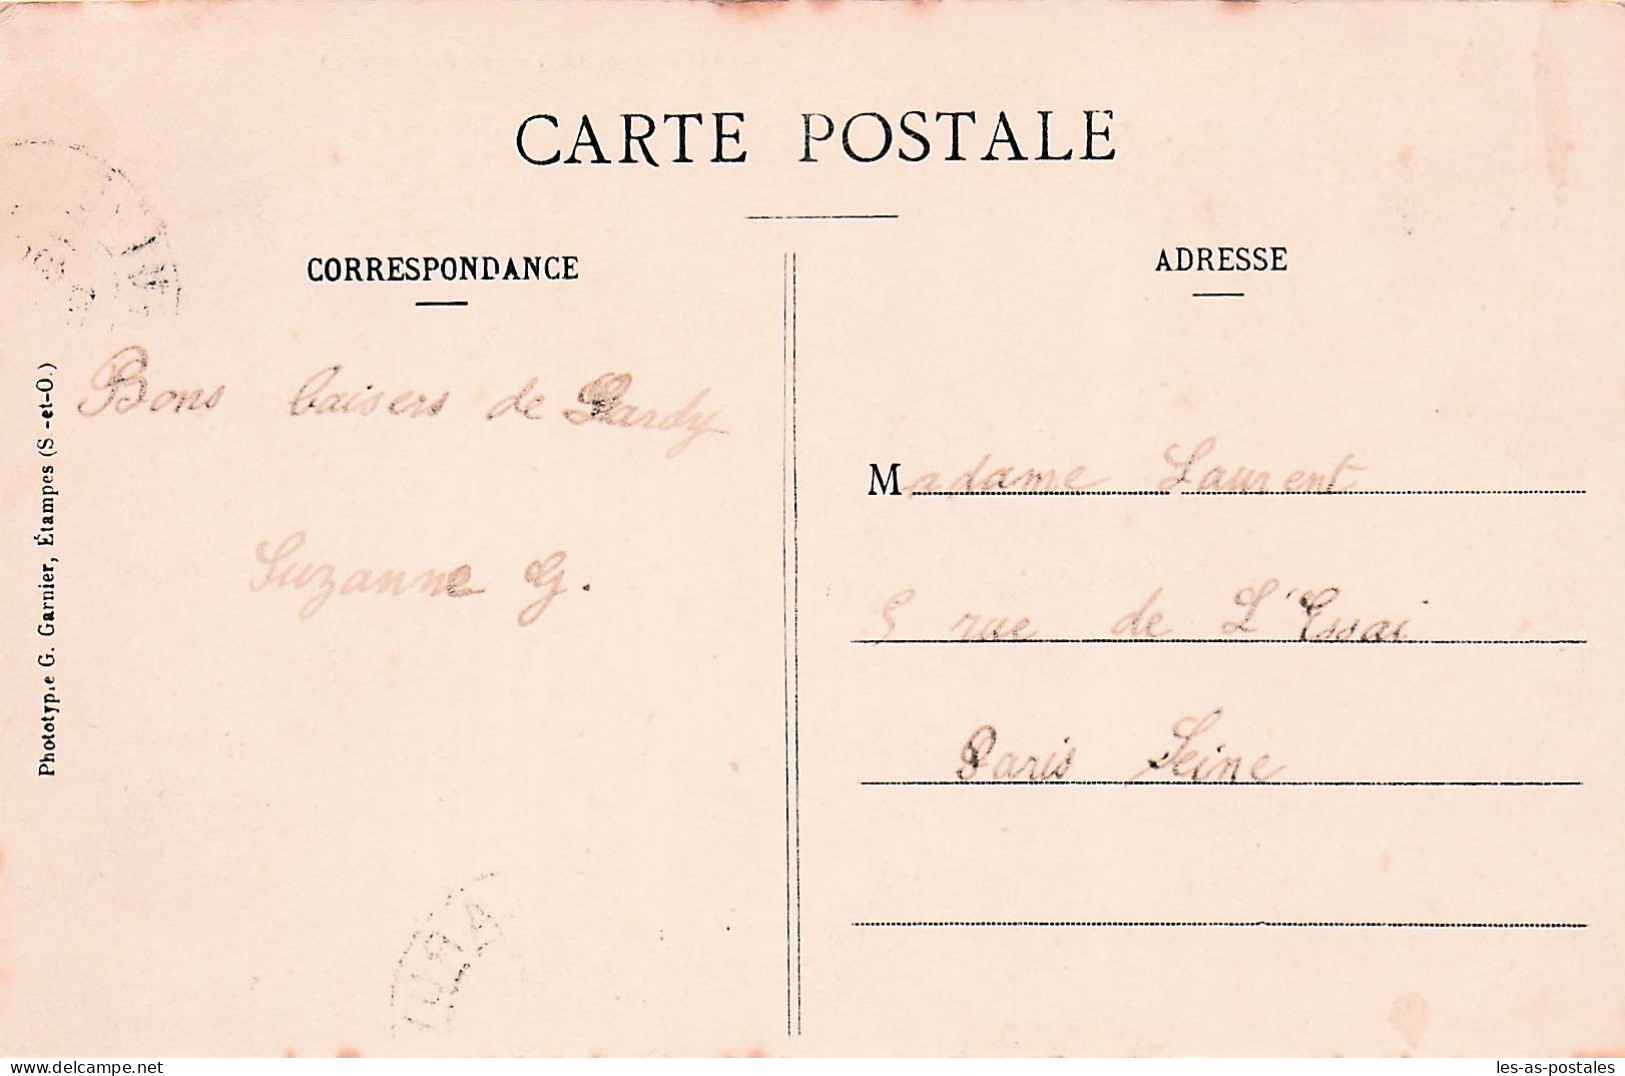 CARTE POSTALE
CORRESPONDANCE
ADRESSE
Bons baisers de Lardy
Suzanne G.
Madame Laurent
5 rue de L'Essai
Paris Seine
Phototypie G. Garnier, Étampes (S.-et-O.)
delcampe.net
les-as-postales